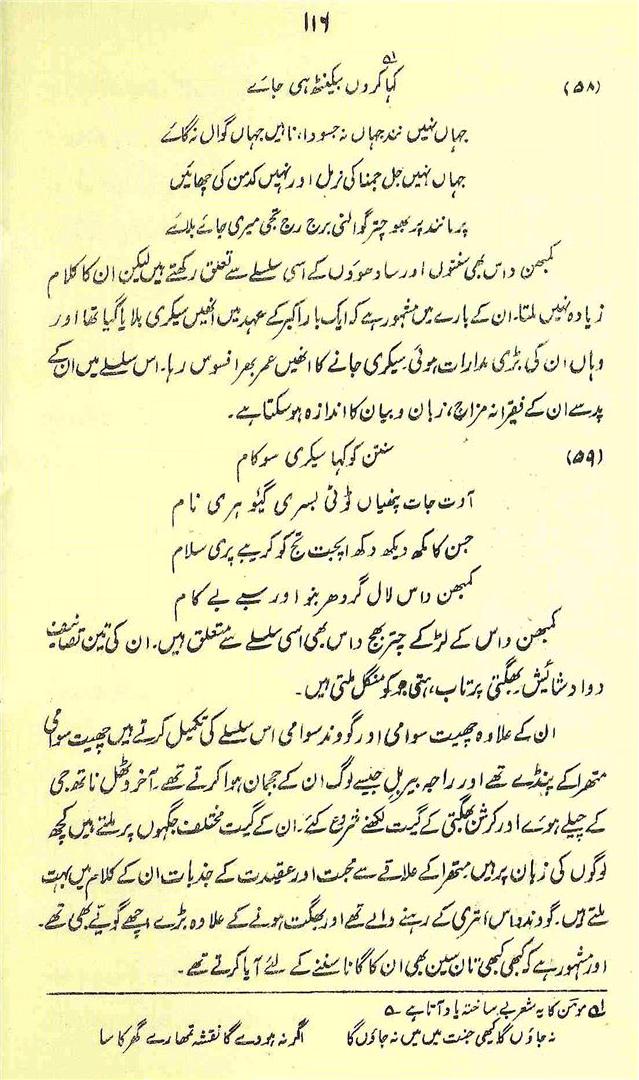 ۱۱۶
(۵۸) کہا کروں بیکنٹھ ہی جائے ۱؎
جہاں نہیں نند جہاں نہ جسودا، ناہیں جہاں گوال نہ گائے
جہاں نہیں جل جمنا کی نرمل اور نہیں کدمن کی چھائیں
پرمانند پربھو چتر گوالنی برج رج تجی میری جائے بلائے
کمبھن داس بھی سنتوں اور سادھوؤں کے اسی سلسلے سے تعلق رکھتے ہیں لیکن ان کا کلام
زیادہ نہیں ملتا۔ ان کے بارے میں مشہور ہے کہ ایک بار اکبر کے عہد میں انھیں سیکری بلایا گیا تھا اور
وہاں ان کی بڑی مدارات ہوئی۔ سیکری جانے کا انھیں عمر بھر افسوس رہا۔ اس سلسلے میں ان کے
پد سے ان کے فقیرانہ مزاج، زبان و بیان کا اندازہ ہو سکتا ہے۔
(۵۹) سنتن کو کہا سیکری سو کام
آوت جات پنھیاں ٹوٹی بسری گیئو ہری نام
جن کا مکھ دیکھ دکھ اپجت تج کو کریبے پری سلام
کمبھن داس لال گردھر بنو اور سبے بے کام
کمبھن داس کے لڑکے چتر بھج داس بھی اسی سلسلے سے متعلق ہیں۔ ان کی تین تصانیف
دوادشائیش، بھگتی پرتاب، ہتی جو کو منگل ملتی ہیں۔
ان کے علاوہ چھیت سوامی اور گوند سوامی اس سلسلے کی تکمیل کرتے ہیں چھیت سوامی
متھرا کے پنڈے تھے اور راجہ بیربل جیسے لوگ ان کے ججمان ہوا کرتے تھے۔ آخر وٹھل ناتھ جی
کے چیلے ہوئے اور کرشن بھگتی کے گیت لکھنے شروع کئے۔ ان کے گیت مختلف جگہوں پر ملتے ہیں کچھ
لوگوں کی زبان پر ہیں۔ متھرا کے علاقے سے محبت اور عقیدت کے جذبات ان کے کلام میں بہت
ملتے ہیں۔ گوند داس انتری کے رہنے والے تھے اور بھگت ہونے کے علاوہ بڑے اچھے گویے بھی تھے۔
اور مشہور ہے کہ کبھی کبھی تان سین بھی ان کا گانا سننے کے لئے آیا کرتے تھے۔
۱؎ مومن کا یہ شعر بے ساختہ یاد آتا ہے ۔
نہ جاؤں گا کبھی جنت میں میں نہ جاؤں گا اگر نہ ہووے گا نقشہ تمھارے گھر کا سا